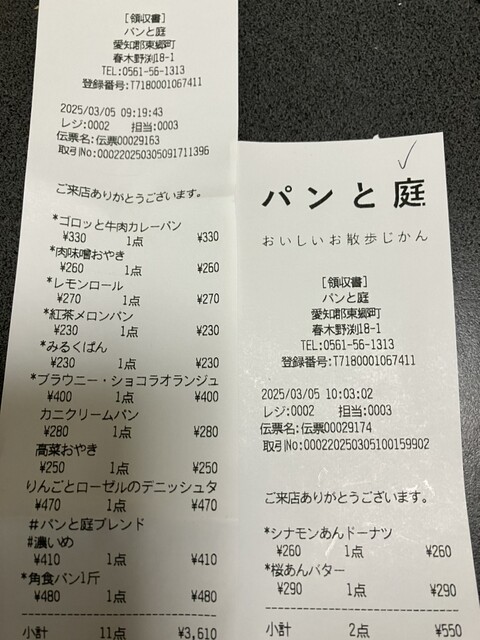 [領収書]
パンと庭
愛知郡東郷町
春木野渕18-1
TEL:0561-56-1313
登録番号:T7180001067411
2025/03/05 09:19:43
レジ:0002 担当:0003
伝票名:伝票00029163
取引No:000220250305091711396
ご来店ありがとうございます。
*ゴロッと牛肉カレーパン
¥330 1点 ¥330
*肉味噌おやき
¥260 1点 ¥260
*レモンロール
¥270 1点 ¥270
*紅茶メロンパン
¥230 1点 ¥230
*みるくぱん
¥230 1点 ¥230
*ブラウニー・ショコラオランジュ
¥400 1点 ¥400
カニクリームパン
¥280 1点 ¥280
高菜おやき
¥250 1点 ¥250
りんごとローゼルのデニッシュタ
¥470 1点 ¥470
#パンと庭ブレンド
#濃いめ
¥410 1点 ¥410
*角食パン1斤
¥480 1点 ¥480
小計 11点 ¥3,610
パンと庭
おいしいお散歩じかん
[領収書]
パンと庭
愛知郡東郷町
春木野渕18-1
TEL:0561-56-1313
登録番号:T7180001067411
2025/03/05 10:03:02
レジ:0002 担当:0003
伝票名:伝票00029174
取引No:000220250305100159902
ご来店ありがとうございます。
*シナモンあんドーナツ
¥260 1点 ¥260
*桜あんバター
¥290 1点 ¥290
小計 2点 ¥550